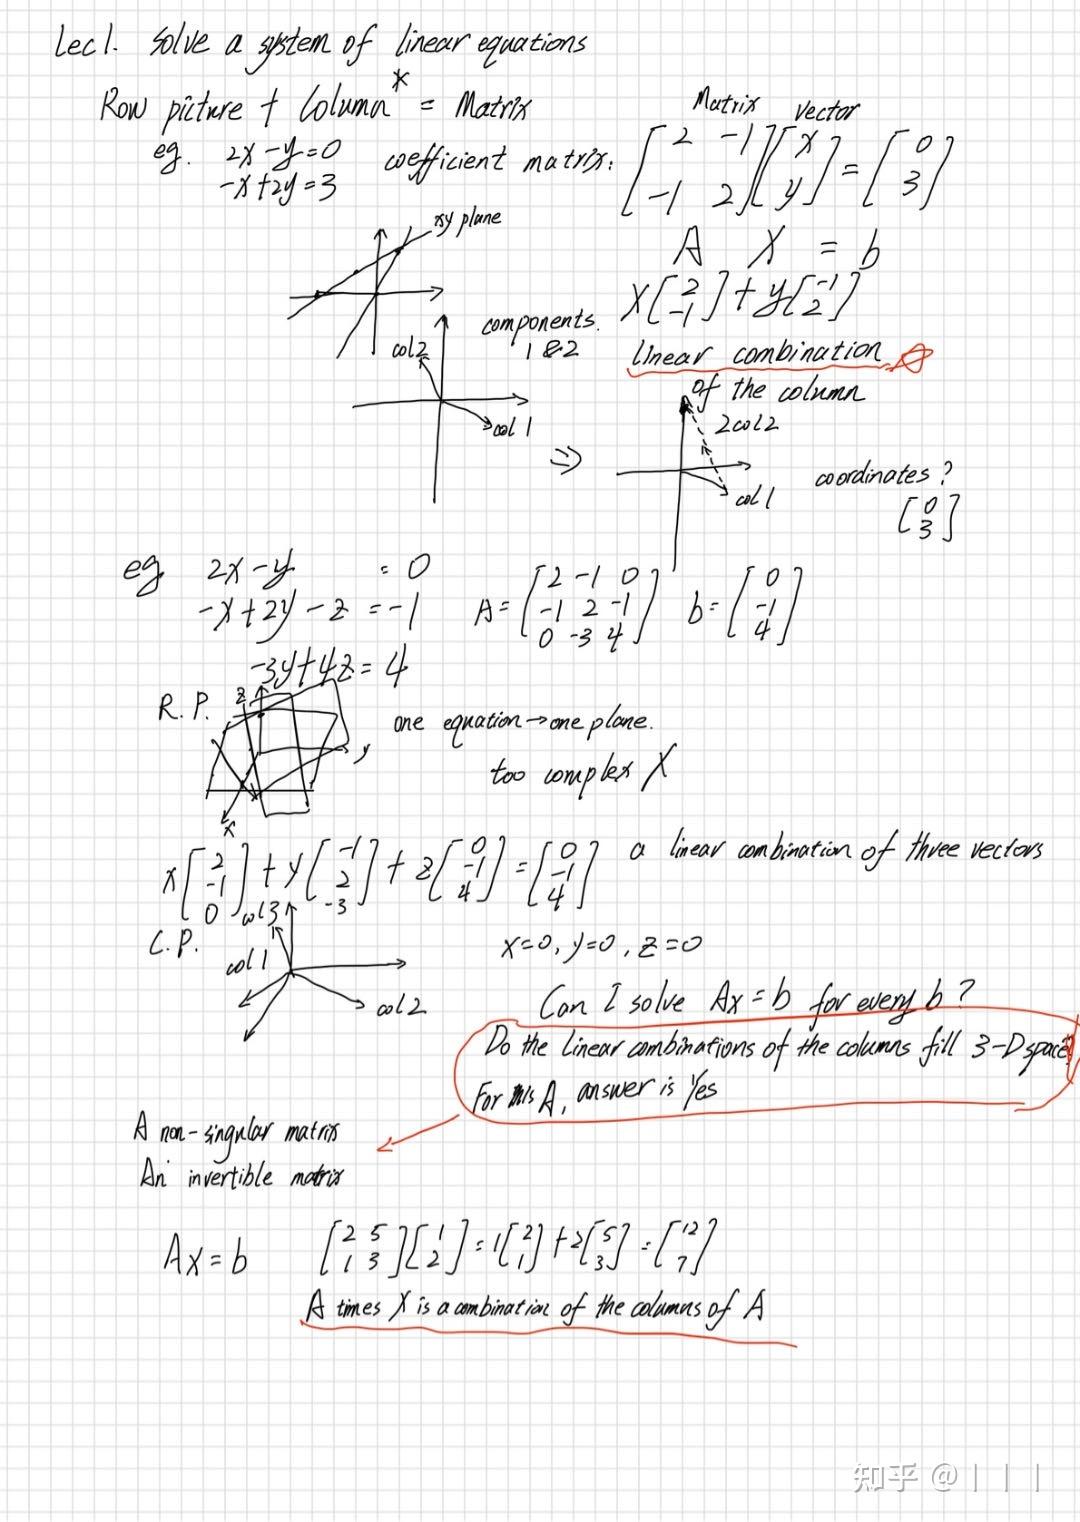 Lec 1. Solve a system of linear equations
Row picture + Column* = Matrix
Matrix vector
eg. 2x-y=0
-x+2y=3
coefficient matrix: [2 -1; -1 2] [x; y] = [0; 3]
A X = b
xy plane
x[2; -1] + y[-1; 2]
components.
1 & 2
linear combination ☆
of the column
col2
col 1
⇒
2col2
col 1
coordinates?
[0; 3]
eg 2x-y = 0
-x+2y-z = -1
-3y+4z = 4
A = [2 -1 0; -1 2 -1; 0 -3 4] b = [0; -1; 4]
R.P.
z
y
x
one equation → one plane.
too complex X
x[2; -1; 0] + y[-1; 2; -3] + z[0; -1; 4] = [0; -1; 4] a linear combination of three vectors
C.P.
col3
col 1
col2
x=0, y=0, z=0
Can I solve Ax=b for every b?
Do the linear combinations of the columns fill 3-D space?
For this A, answer is Yes
A non-singular matrix
An invertible matrix
Ax=b [2 5; 1 3] [1; 2] = 1[2; 1] + 2[5; 3] = [12; 7]
A times X is a combination of the columns of A
知乎 @| | |